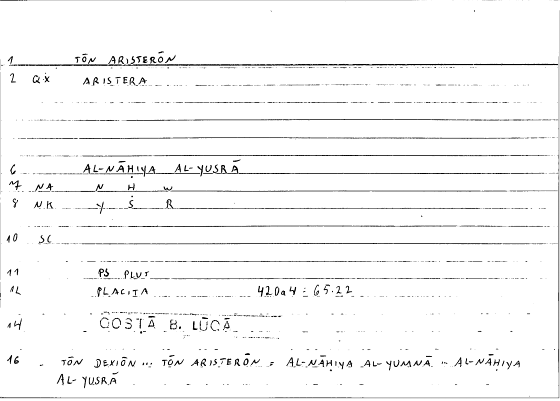 1 TŌN ARISTERŌN
2 QẌ ARISTERA
6 AL-NĀḤIYA AL-YUSRĀ
7 NA N Ḥ W
8 NK Y S R
10 SC
11 PS PLUT
12 PLACITA 420a4 : 65.22
14 QOSṬĀ B. LŪQĀ
16 TŌN DEXIŌN ... TŌN ARISTERŌN = AL-NĀḤIYA AL-YUMNĀ - AL-NĀḤIYA
AL-YUSRĀ